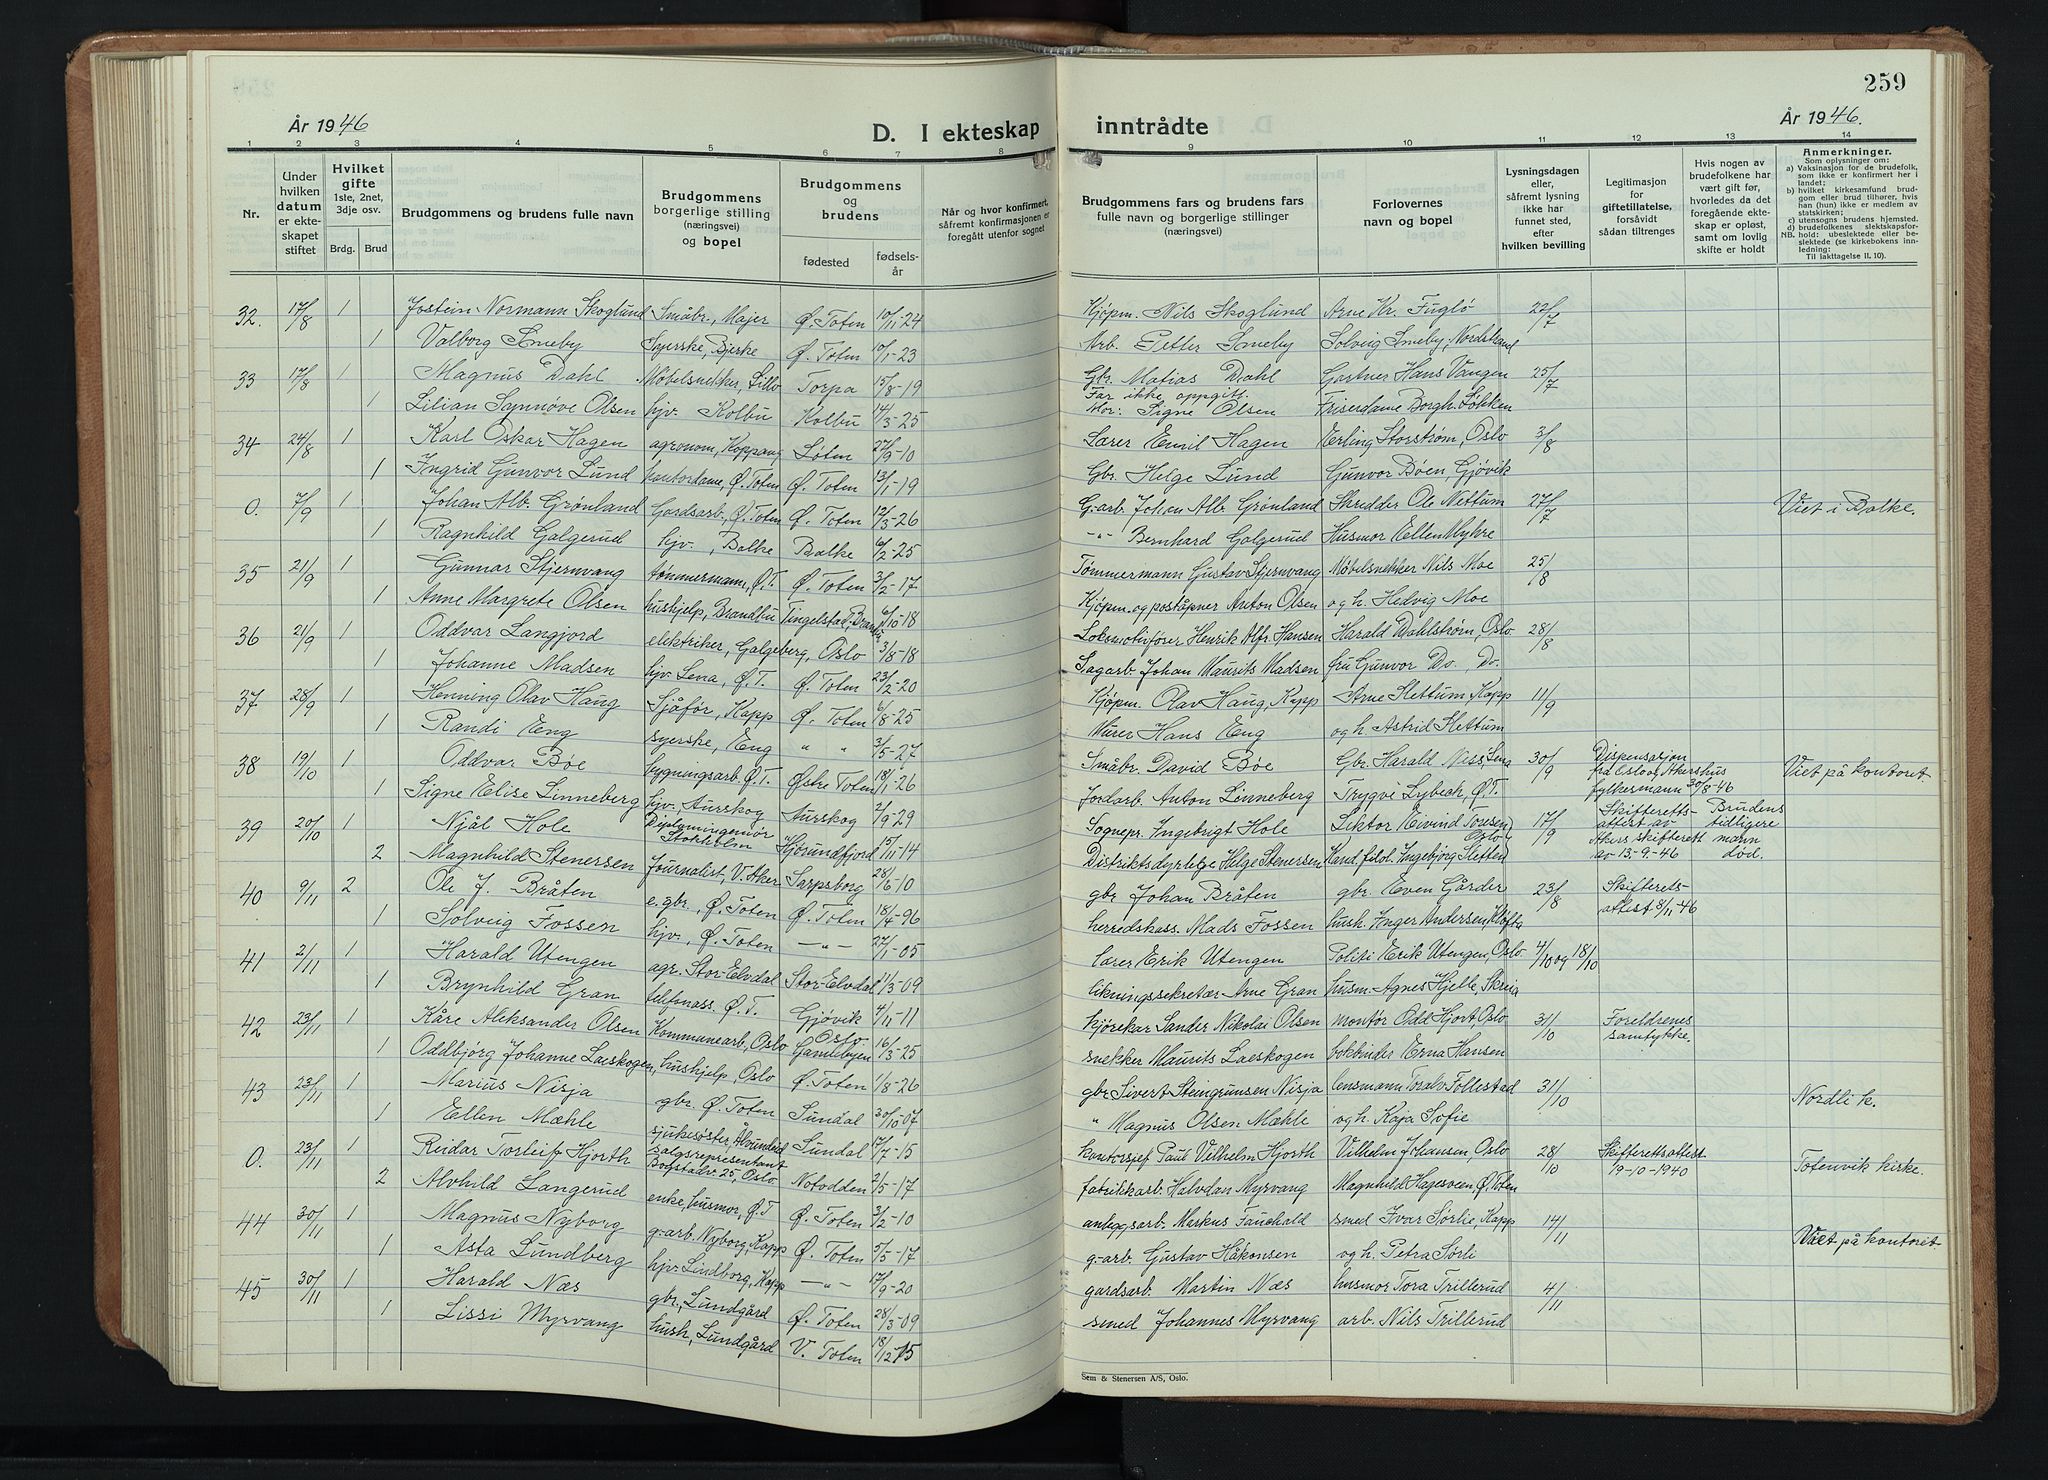 259
År 1946
D. I ekteskap
inntrådte
År 1946.
1 2 3 4 5 6 7 8 9 10 11 12 13 14
Nr.
Under hvilken datum er ekteskapet stiftet
Hvilket gifte 1ste, 2net, 3dje osv.
Brdg. Brud
Brudgommens og brudens fulle navn
Brudgommens borgerlige stilling (næringsvei) og bopel
Brudgommens og brudens
fødested
fødsels-år
Når og hvor konfirmert, såfremt konfirmasjonen er foregått utenfor sognet
Brudgommens fars og brudens fars fulle navn og borgerlige stillinger (næringsvei)
Forlovernes navn og bopel
Lysningsdagen eller, såfremt lysning ikke har funnet sted, efter hvilken bevilling
Legitimasjon for giftetillatelse, forsåvidt sådan tiltrenges
Hvis nogen av brudefolkene har vært gift før, hvorledes da det foregående ekteskap er opløst, samt om lovlig skifte er holdt
Anmerkninger.
Som oplysninger om:
a) Vaksinasjon for de brudefolk, som ikke er konfirmert her i landet;
b) hvilket kirkesamfund brudgom eller brud tilhører, hvis han (hun) ikke er medlem av statskirken;
c) utensogns brudens hjemsted.
d) brudefolkenes slektskapsforhold: ubeslektede eller beslektede (se kirkebokens innledning:
NB.
Til iakttagelse II, 10).
32. 17/8 1 Jostein Normann Skoglund Småbr., Majer Ø. Toten 10/11-24 Kjøpm. Nils Skoglund Arne Kr. Fuglø 22/7
1 Valborg Smeby Syerske, Bjerke Ø. Toten 10/1-23 Arb. Petter Smeby Solveig Smeby, Nordstrand
33 17/8 1 Magnus Dahl Møbelsnekker, Lillo Torpa 15/8-19 Gbr. Matias Dahl Gartner Hans Vangen 25/7
1 Lilian Synnøve Olsen hjv. Kolbu Kolbu 14/3-25 Far ikke oppgitt. Mor: Signe Olsen Friserdame Borgh. Løkken
34 24/8 1 Karl Oskar Hagen agronom, Koppang Løten 27/9-10 Lærer Emil Hagen Erling Storstrøm, Oslo 3/8
1 Ingrid Gunvor Lund kontordame, Ø. Toten Ø. Toten 13/1-19 Gbr. Helge Lund Gunvor Bøen, Gjøvik
0. 7/9 1 Johan Alb. Grønland Gardsarb., Ø. Toten Ø. Toten 12/3-26 G.arb. Johan Alb. Grønland Skredder Ole Nettum 27/7 Viet i Balke.
1 Ragnhild Galgerud hjv., Balke Balke 6/2-25 -"- Bernhard Galgerud Husmor Ellen Myhre
35 21/9 1 Gunnar Stjernvang tømmermann, Ø.T. Ø. Toten 3/2-17 Tømmermann Gustav Stjernvang Møbelsnekker Nils Moe 25/8
1 Anne Margrete Olsen hushjelp, Brandbu Tingelstad, Brandbu 6/10-18 Kjøpm. og poståpner Anton Olsen og h. Hedvig Moe
36 21/9 1 Oddvar Langjord elektriker, Galgeberg, Oslo 3/8-18 Lokomotivfører Henrik Alfr. Hansen Harald Dahlstrøm, Oslo 28/8
1 Johanne Madsen hjv. Lena, Ø.T. Ø. Toten 23/2-20 Sagarb. Johan Maurits Madsen fru Gunvor Do., Do.
37 28/9 1 Henning Olav Haug Sjåfør, Kapp Ø. Toten 6/8-25 Kjøpm. Olav Haug, Kapp Arne Slettum, Kapp 11/9
1 Randi Eng syerske, Eng " " 3/5-27 Murer Hans Eng og h. Astrid Slettum
38 19/10 1 Oddvar Bøe bygningsarb. Ø.T. Østre Toten 18/1-26 Småbr. David Bøe Gbr. Harald Niss, Lena 30/9 Dispensasjon fra Oslo og Akershus fylkesmann 30/8-46 Viet på kontoret.
1 Signe Elise Linneberg hjv. Aurskog Aurskog 2/9-29 Jordarb. Anton Linneberg Trygve Lybeck, Ø.T.
39 20/10 1 Njål Hole Diplomingeniør Stokholm Hjørundfjord 15/11-14 Sognepr. Ingebrigt Hole Lektor Eivind Toresen Oslo 17/9 Skifteretts-attest av Akers skifterett av 13.-9.-46 Brudens tidligere mann død.
2 Magnhild Stenersen Journalist, V. Aker Sarpsborg 28/6-10 Distriktsdyrlege Helge Stenersen Kand. filol. Ingebjørg Sletten
40 9/11 2 Ole J. Bråten e. gbr., Ø. Toten Ø. Toten 18/4-96 gbr Johan Bråten gbr. Even Gårder 23/8 Skifterets-attest 8/11-46
1 Solveig Fossen hjv., Ø. Toten -"- 27/1-05 herredskass. Mads Fossen hush. Inger Andersen, Kløfta
41 2/11 1 Harald Utengen agr. Stor-Elvdal Stor-Elvdal 11/3-09 lærer Erik Utengen Politi Erik Utengen, Oslo 4/10 og 18/10
1 Brynhild Gran telefonass. Ø.T. Gjøvik 4/11-11 likningssekretær Arne Gran husm. Agnes Hjelle, Skreia
42 23/11 1 Kåre Aleksander Olsen Kommunearb., Oslo Oslo Gamlebyen 16/3-25 kjørekar Sander Nikolai Olsen montør Odd Hjort, Oslo 31/10 Foreldrenes samtykke.
1 Oddbjørg Johanne Laeskogen, hushjelp, Oslo Ø. Toten 1/8-26 snekker Maurits Laeskogen bokbinder Erna Hansen
43 23/11 1 Marius Nisja gbr. Ø. Toten Sundal 30/10-07 gbr Sivert Steingrimsen Nisja lensmann Toralv Follestad 31/10 Nordli k.
1 Ellen Mæhle sjukesøster, Ålvundeid Sundal 17/7-15 " Magnus Olsen Mæhle og h. Kaja Sofie
0. 23/11 1 Reidar Torleif Hjorth Salgsrepresentant Bogstadv. 25, Oslo Notodden 2/5-17 kontorsjef Paul Vilhelm Hjorth Vilhelm Johansen Oslo 28/10 Skifterettsattest 19-10-1940 Totenvik kirke.
2 Alvhild Langerud enke, husmor, Ø.T Ø. Toten 3/2-10 fabrikkarb. Halvdan Myrvang Magnhild Hagesveen, Ø. Toten
44 30/11 1 Magnus Nyborg g.-arb. Nyborg, Kapp Ø. Toten 5/5-17 anleggsarb. Markus Fauchald smed Ivar Sørlie, Kapp 14/11 Viet på kontoret.
1 Asta Lundberg hjv. Lindborg, Kapp -"- 17/9-20 g.-arb. Gustav Håkonsen og h. Petra Sørli
45 30/11 1 Harald Næs gbr., Lundgård Ø. Toten 28/3-09 gardsarb. Martin Næs husmor Tora Trillerud 4/11
1 Lissi Myrvang hush, Lundgård V. Toten 18/12-15 smed Johannes Myrvang arb. Nils Trillerud
Sem & Stenersen A/S, Oslo.